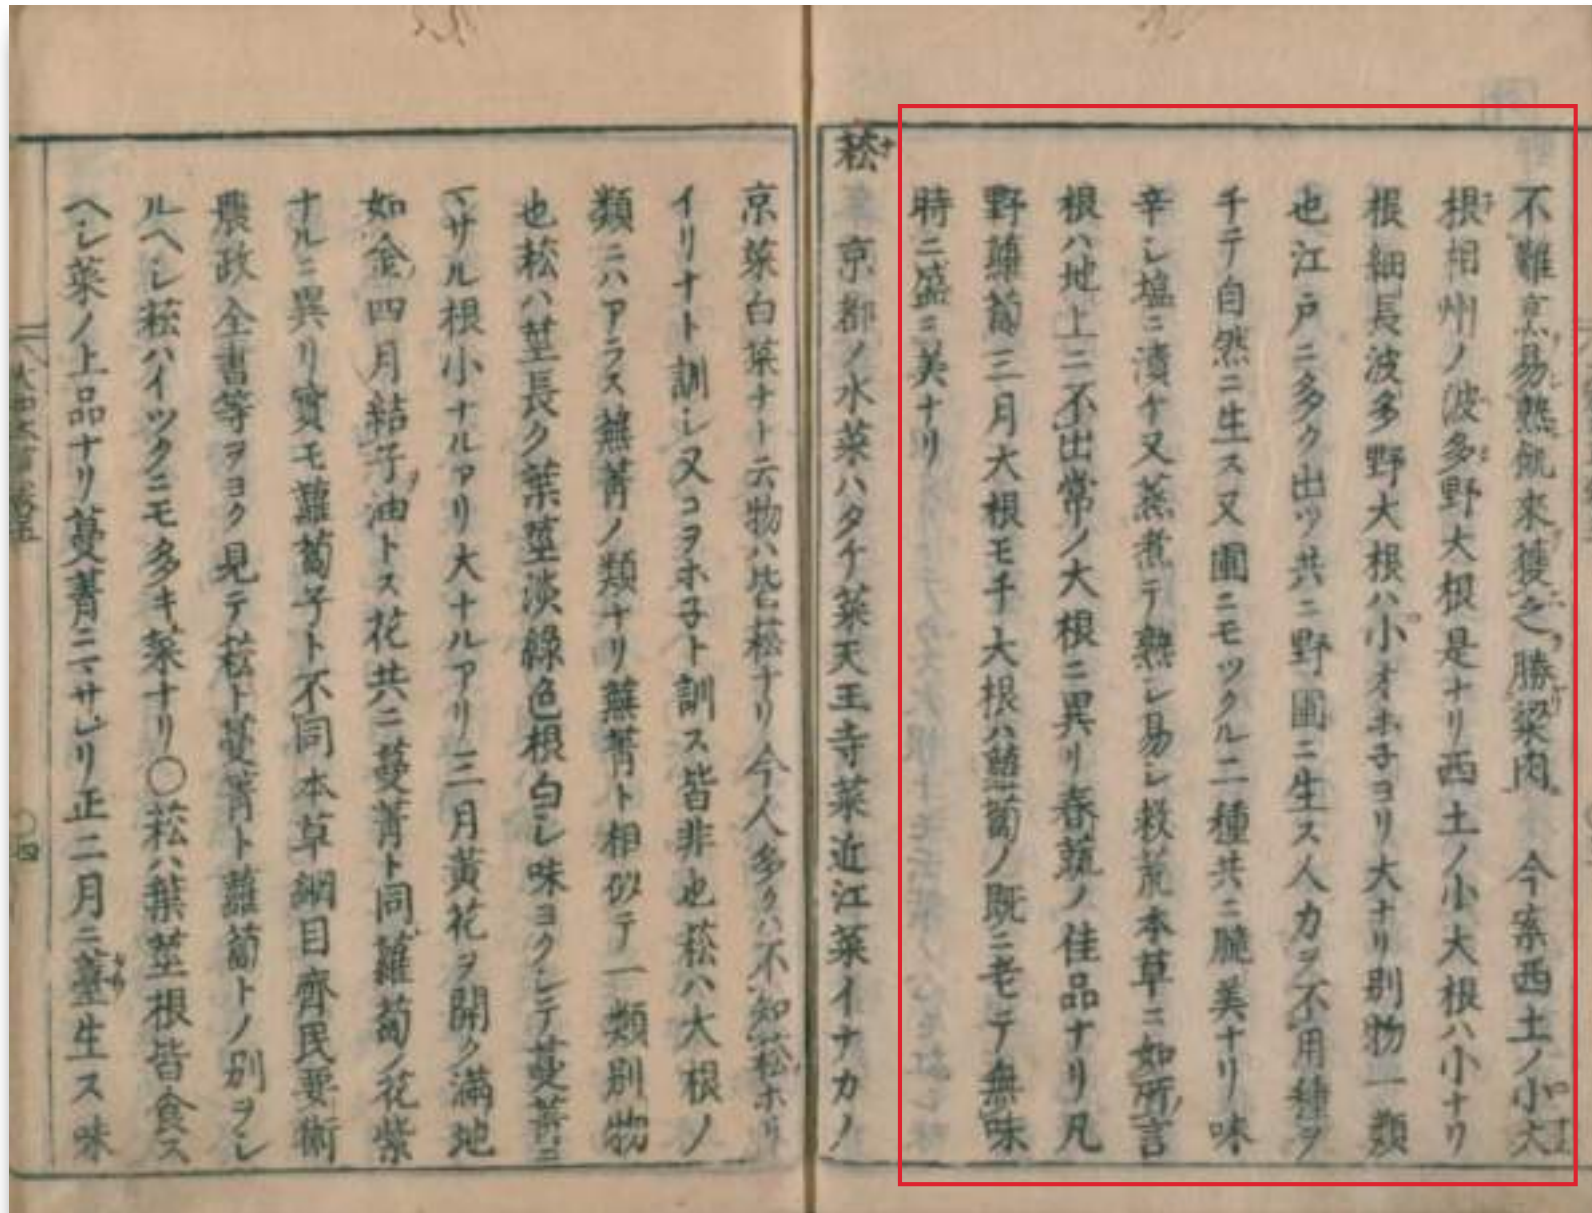 不難烹易熟飢來獲之勝梁肉今案西土ノ小大
根相州ノ波多野大根是ナリ西土ノ小大根ハ小ナリ
根細長波多野大根ハ小オホ子ヨリ大ナリ別物一類
也江戸ニ多ク出ツ共ニ野圃ニ生ス人力ヲ不用種ヲ
千テ自然ニ生ス又圃ニモツクル二種共ニ脆美ナリ味
辛シ塩ニ漬ケ又蒸煮テ熟シ易シ救荒本草ニ如所言
根ハ地上ニ不出常ノ大根ニ異リ春蔬ノ佳品ナリ凡
野蘿蔔三月大根モ千大根ハ蘿蔔ノ既ニ老テ無味
時ニ盛ニ美ナリ
菘 京都ノ水菜ハタケ菜天王寺菜近江菜イナカノ
京菜白菜ナト云物ハ皆菘ナリ今人多クハ不知菘ホリ
イリナト訓シ又コヲホ子ト訓ス皆非也菘ハ大根ノ
類ニハアラス蕪菁ノ類ナリ蕪菁ト相似テ一類別物
也菘ハ莖長ク葉莖淡緑色根白シ味ヨクシテ蔓菁ニ
マサル根小ナルアリ大ナルアリ三月黄花ヲ開ク満地
如金四月結子油トス花共ニ蔓菁ト同蘿蔔ノ花紫
ナルニ異リ實モ蘿蔔子ト不同本草綱目齊民要術
農政全書等ヲヨク見テ菘ト蔓菁ト蘿蔔トノ別ヲシ
ルヘシ菘ハイツクニモ多キ菜ナリ〇菘ハ葉莖根皆食ス
ヘシ菜ノ上品ナリ蔓菁ニマサレリ正二月ニ薹生ス味